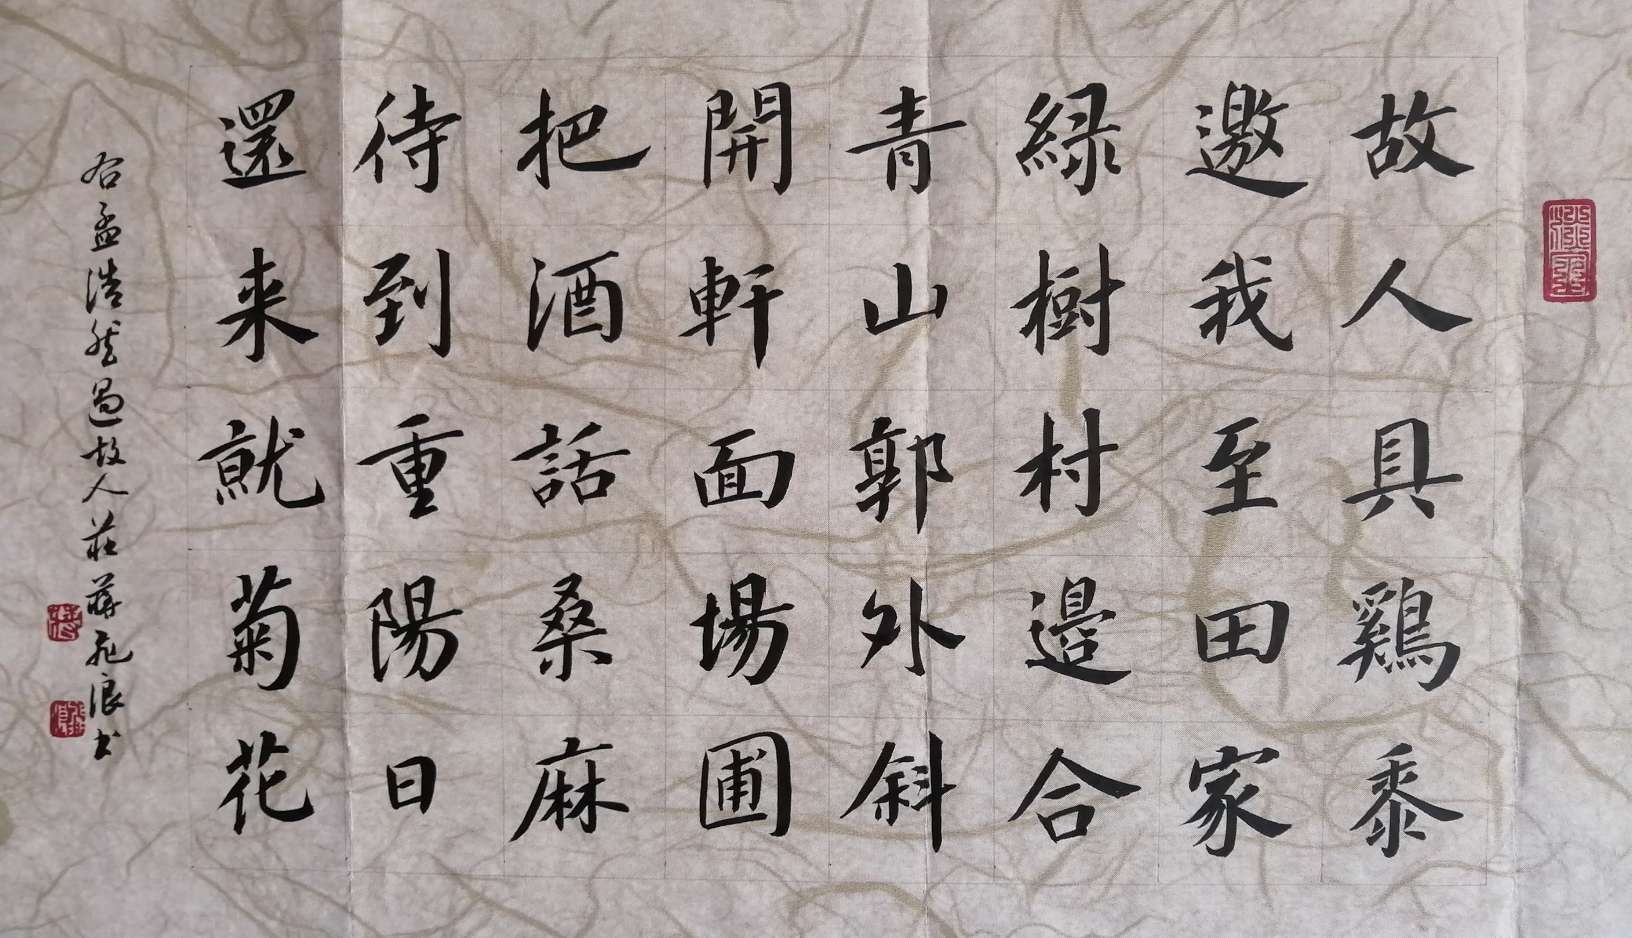 故人具鷄黍
邀我至田家
綠樹村邊合
青山郭外斜
開軒面場圃
把酒話桑麻
待到重陽日
還来就菊花
右孟浩然過故人莊蔣飛浪书